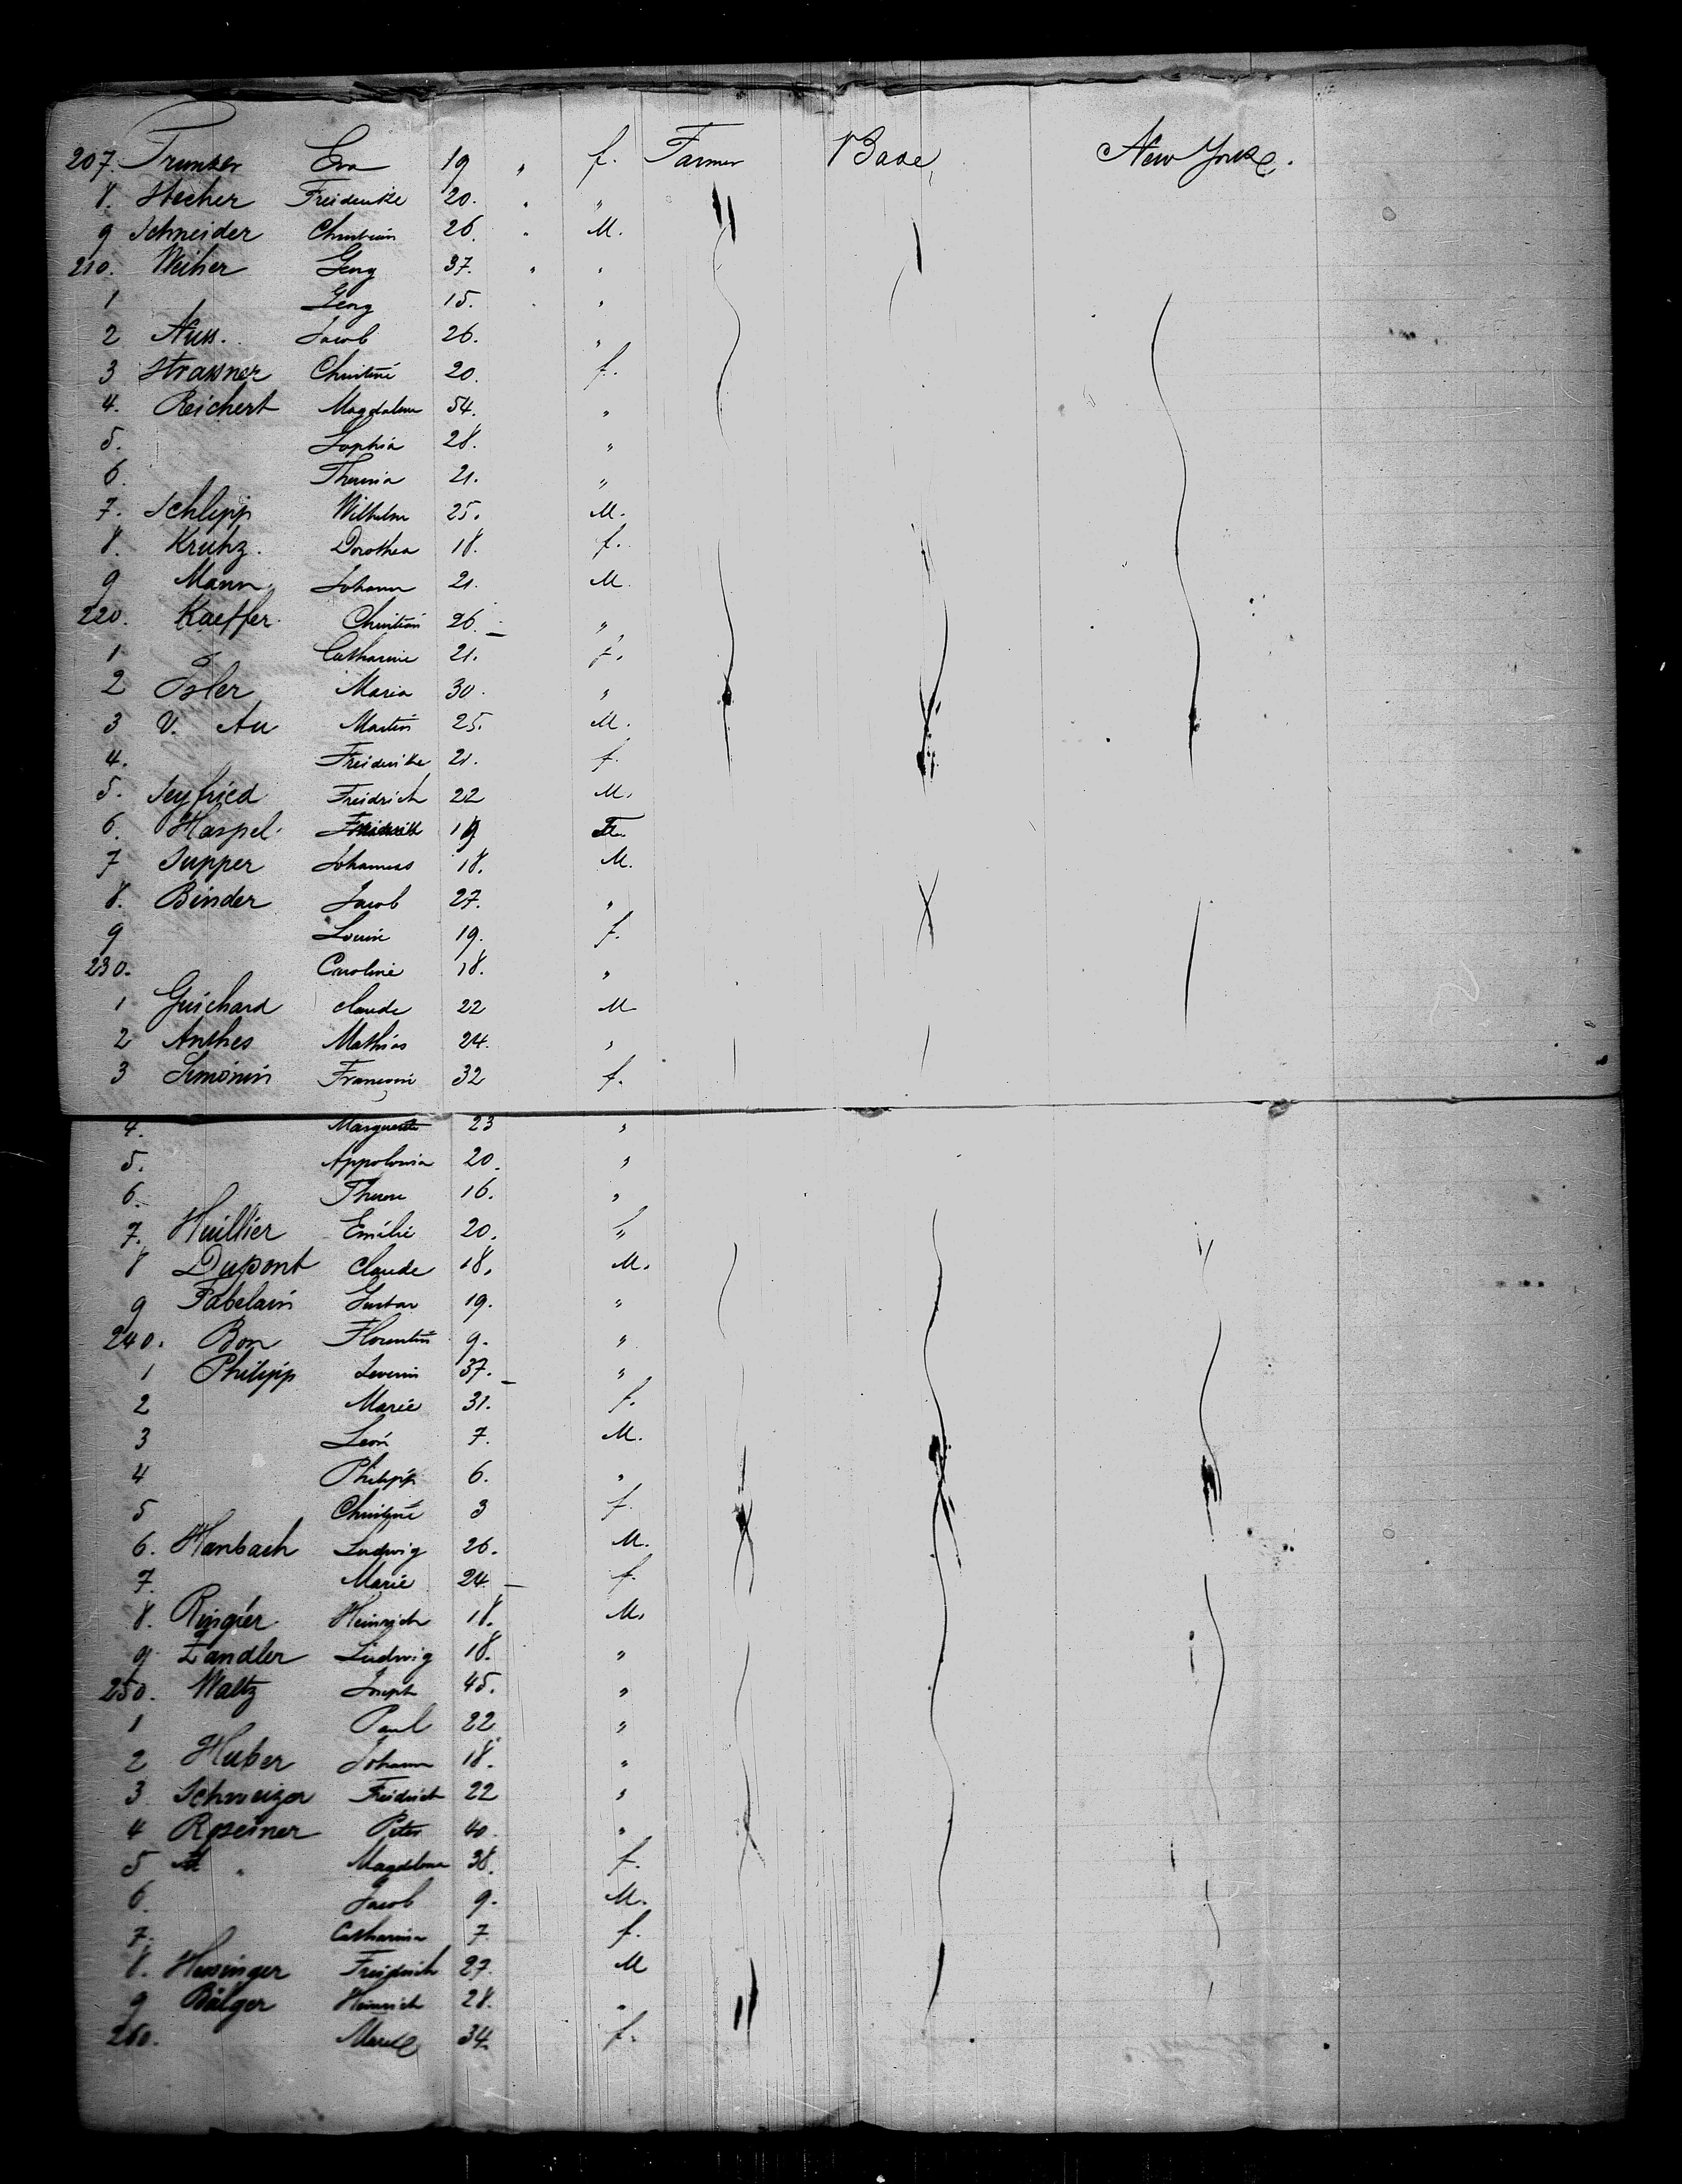 207. Trunzer Eva 19 " f. Farmer Base, New York.
8. Stecher Freiderike 20. " "
9 Schneider Christian 26. " M.
210. Weiher Georg 37. " "
1 Georg 15. " "
2 Nuss. Jacob 26. "
3 Strassner Christine 20. f.
4. Reichert Magdalena 54. "
5. Sophia 28. "
6. Theresia 21. "
7. Schlipp Wilhelm 25. M.
8. Kruhz. Dorothea 18. f.
9 Mann Johann 21. M
220. Kaeffer Christian 26. "
1 Catharine 21. f.
2 Isler Maria 30. "
3 V. Au Martin 25. M.
4. Freiderike 21. f.
5. Seyfried Freidrich 22 M.
6. Haspel 19 F.
7 Supper Johannes 18. M.
8. Binder Jacob 27. "
9 Louise 19. f.
230. Caroline 18. "
1 Guichard Claude 22 M
2 Anthes Mathias 24. "
3 Simonin 32 f.
4. Marguerite 23 "
5. Appolonia 20. "
6. 16. "
7. Huillier Emilie 20. "
8 Dupont Claude 18. M.
9 Fabelain Gustav 19. "
240. Bon Florentin 9. "
1 Philipp Severin 37. "
2 Marie 31. f.
3 Leon 7. M.
4 Philipp 6. "
5 Christine 3 f.
6. Hanbach Ludwig 26. M.
7. Marie 24 f.
8. Ringier Heinrich 18. M.
9. Zandler Ludwig 18. "
250. Waltz Joseph 45. "
1 Paul 22 "
2 Huber Johann 18. "
3 Schweizer Freidrich 22 "
4 Roseiner Peter 40. "
5 " Magdalena 38. f.
6. Jacob 9. M.
7. Catharina 7. f.
8. Heusinger Freidrich 27. M
9 Bälger Heinrich 28. "
260. Marie 34. f.